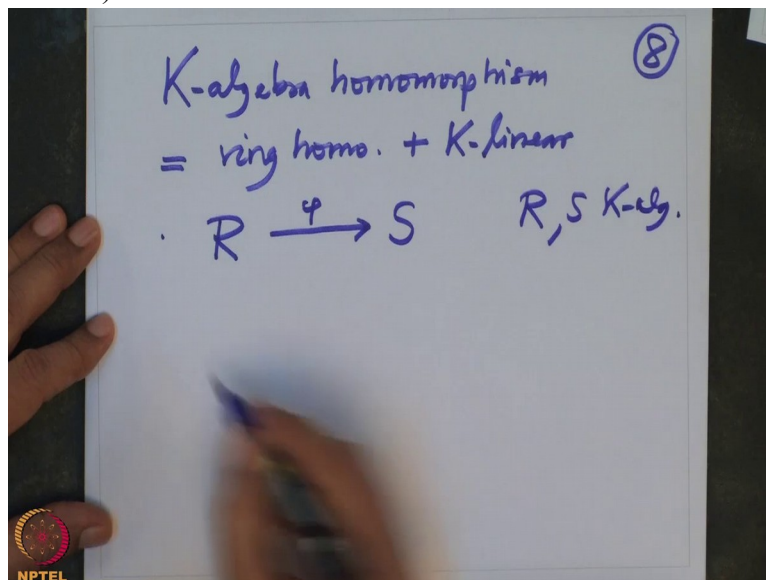 ⑧
K-algebra homomorphism
= ring homo. + K-linear
· R —φ→ S R, S K-alg.
NPTEL